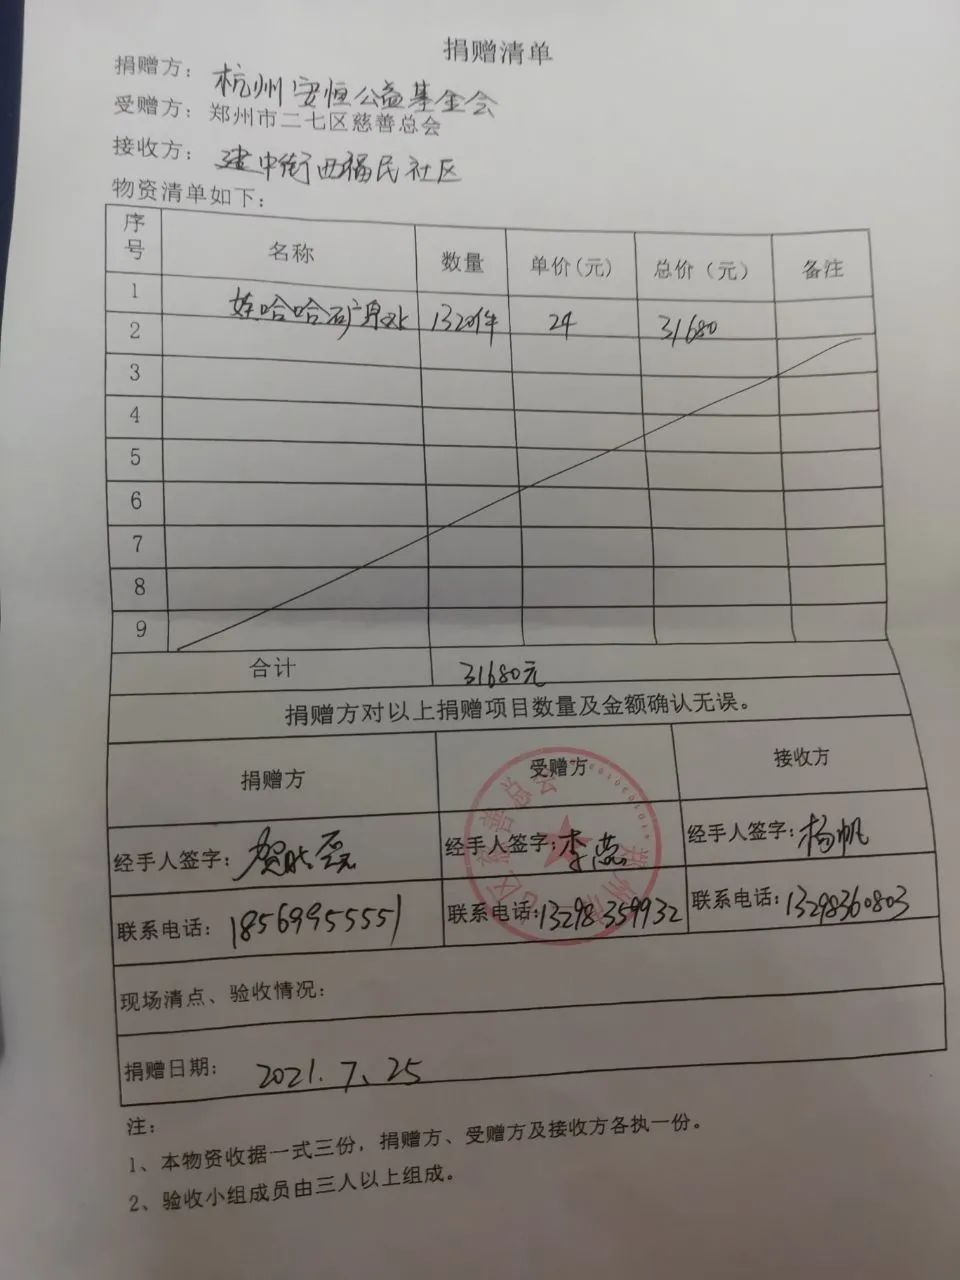 捐赠清单
捐赠方：杭州安恒公益基金会
受赠方：郑州市二七区慈善总会
接收方：建中街西福民社区
物资清单如下：
序号 名称 数量 单价(元) 总价（元） 备注
1 娃哈哈矿泉水 1320件 24 31680
2
3
4
5
6
7
8
9
合计 31680元
捐赠方对以上捐赠项目数量及金额确认无误。
捐赠方 受赠方 接收方
经手人签字： 经手人签字：李蕊 经手人签字：杨帆
联系电话：18569955551 联系电话：13298359932 联系电话：13298360803
现场清点、验收情况：
捐赠日期：2021.7.25
注：
1、本物资收据一式三份，捐赠方、受赠方及接收方各执一份。
2、验收小组成员由三人以上组成。